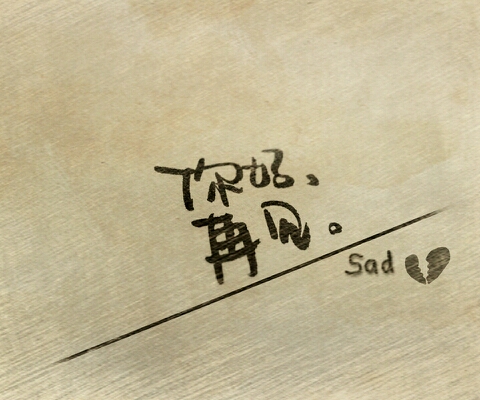 你好、
再见。
Sad